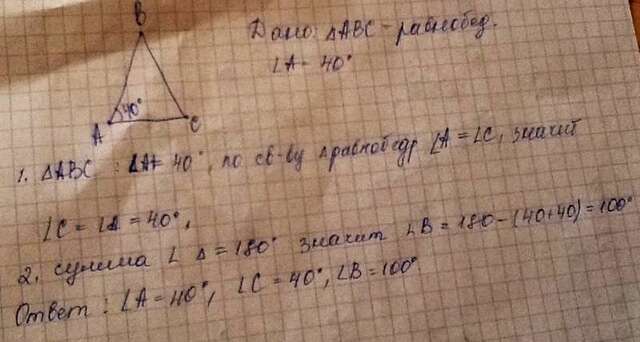 B
Дано: ΔABC - равнобед.
∠A - 40°
40°
A
C
1. ΔABC : ∠A = 40°, по св-ву равнобедр ∠A = ∠C, значит
∠C = ∠A = 40°,
2. сумма ∠ Δ = 180° значит ∠B = 180 - (40+40) = 100°
Ответ: ∠A = 40°, ∠C = 40°, ∠B = 100°